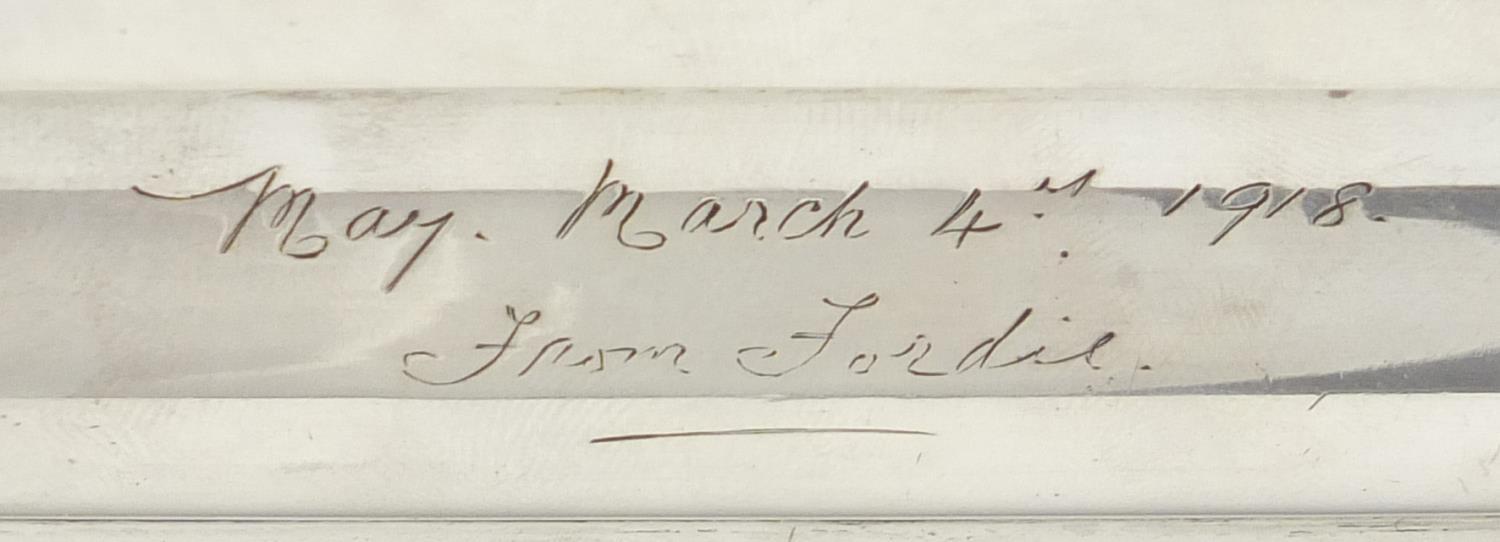 May. March 4th 1918.
From Fordie.